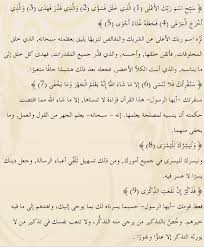 ﴿ سَبِّحِ اسْمَ رَبِّكَ الأَعْلَى (1) الَّذِي خَلَقَ فَسَوَّى (2) وَالَّذِي قَدَّرَ فَهَدَى (3) وَالَّذِي
أَخْرَجَ الْمَرْعَى (4) فَجَعَلَهُ غُثَاءً أَحْوَى (5) ﴾
نَزِّه اسم ربك الأعلى عن الشريك والنقائص تنزيهًا يليق بعظمته سبحانه, الذي خلق
المخلوقات, فأتقن خلقها, وأحسنه, والذي قدَّر جميع المقدرات, فهدى كل خلق إلى
ما يناسبه, والذي أنبت الكلأ الأخضر, فجعله بعد ذلك هشيمًا جافًا متغيرًا.
﴿ سَنُقْرِئُكَ فَلا تَنْسَى (6) إِلا مَا شَاءَ اللَّهُ إِنَّهُ يَعْلَمُ الْجَهْرَ وَمَا يَخْفَى (7) ﴾
سنقرئك -أيها الرسول- هذا القرآن قراءة لا تنساها, إلا ما شاء الله مما اقتضت
حكمته أن ينسيه لمصلحة يعلمها. إنه -سبحانه- يعلم الجهر من القول والعمل, وما
يخفى منهما.
﴿ وَنُيَسِّرُكَ لِلْيُسْرَى (8) ﴾
ونيسرك لليسرى في جميع أمورك, ومن ذلك تسهيل تَلَقِّي أعباء الرسالة, وجعل دينك
يسرًا لا عسر فيه.
﴿ فَذَكِّرْ إِنْ نَفَعَتِ الذِّكْرَى (9) ﴾
فعظ قومك -أيها الرسول- حسبما يسرناه لك بما يوحى إليك, واهدهم إلى ما فيه
خيرهم. وخُصَّ بالتذكير من يرجى منه التذكُّر, ولا تتعب نفسك في تذكير من لا
يورثه التذكر إلا عتوًّا ونفورًا.